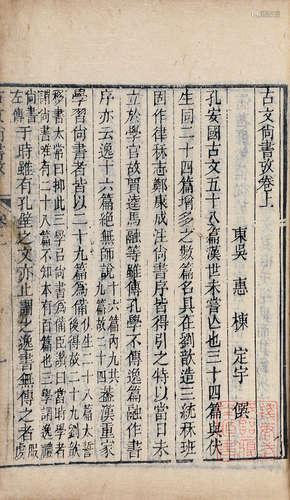 古文尚書攷卷上
東吳 惠棟 定宇 僎
孔安國古文五十八篇漢世未嘗亾也三十四篇與伏
生同二十四篇增多之數篇名具在劉歆造三統秝班
固作律秝志鄭康成注尚書序皆得引之特以當日未
立於學官故賈逵馬融等雖傳孔學不傳逸篇融作書
序亦云逸十六篇絕無師說十六篇內九共九篇故二十四蓋漢重家
學習尚書者皆以二十九篇為備伏生二十八篇太誓後得故二十九劉歆
移書太常曰抑此三學吕尚書為備臣瓚曰當時學者
謂尚書唯有二十八篇不知本有百篇也三學謂逸禮
尚書
于時雖有孔壁之文亦止謂之逸書無傳之者服虔